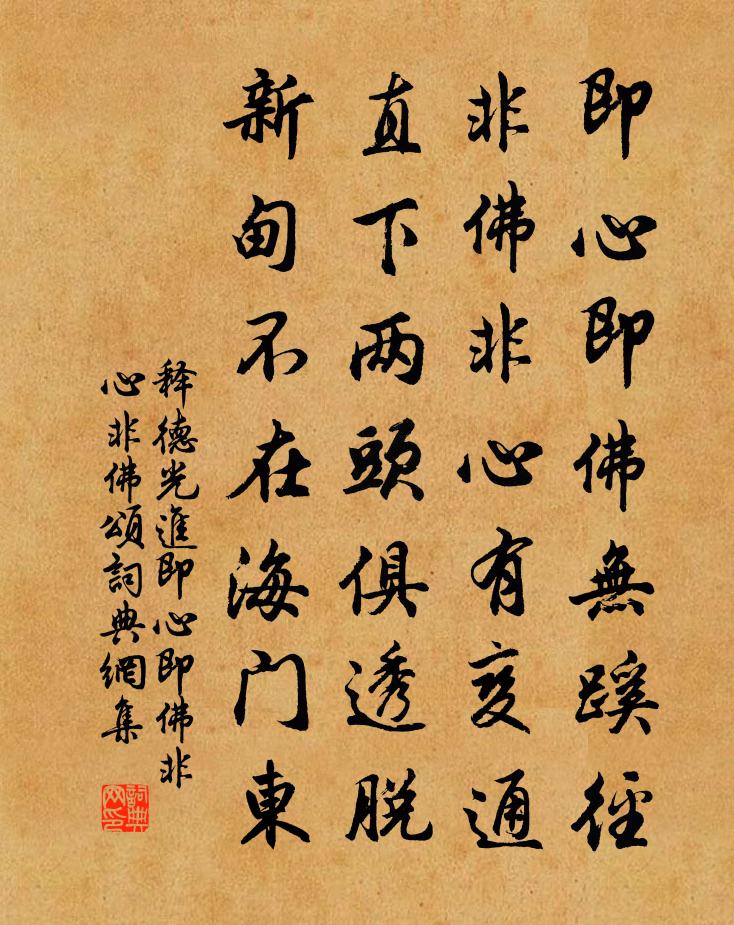 即心即佛無蹊徑
非佛非心有变通
直下两頭俱透脱
新甸不在海门東
释德光進即心即佛非
心非佛頌詞典網集
詞典
网印